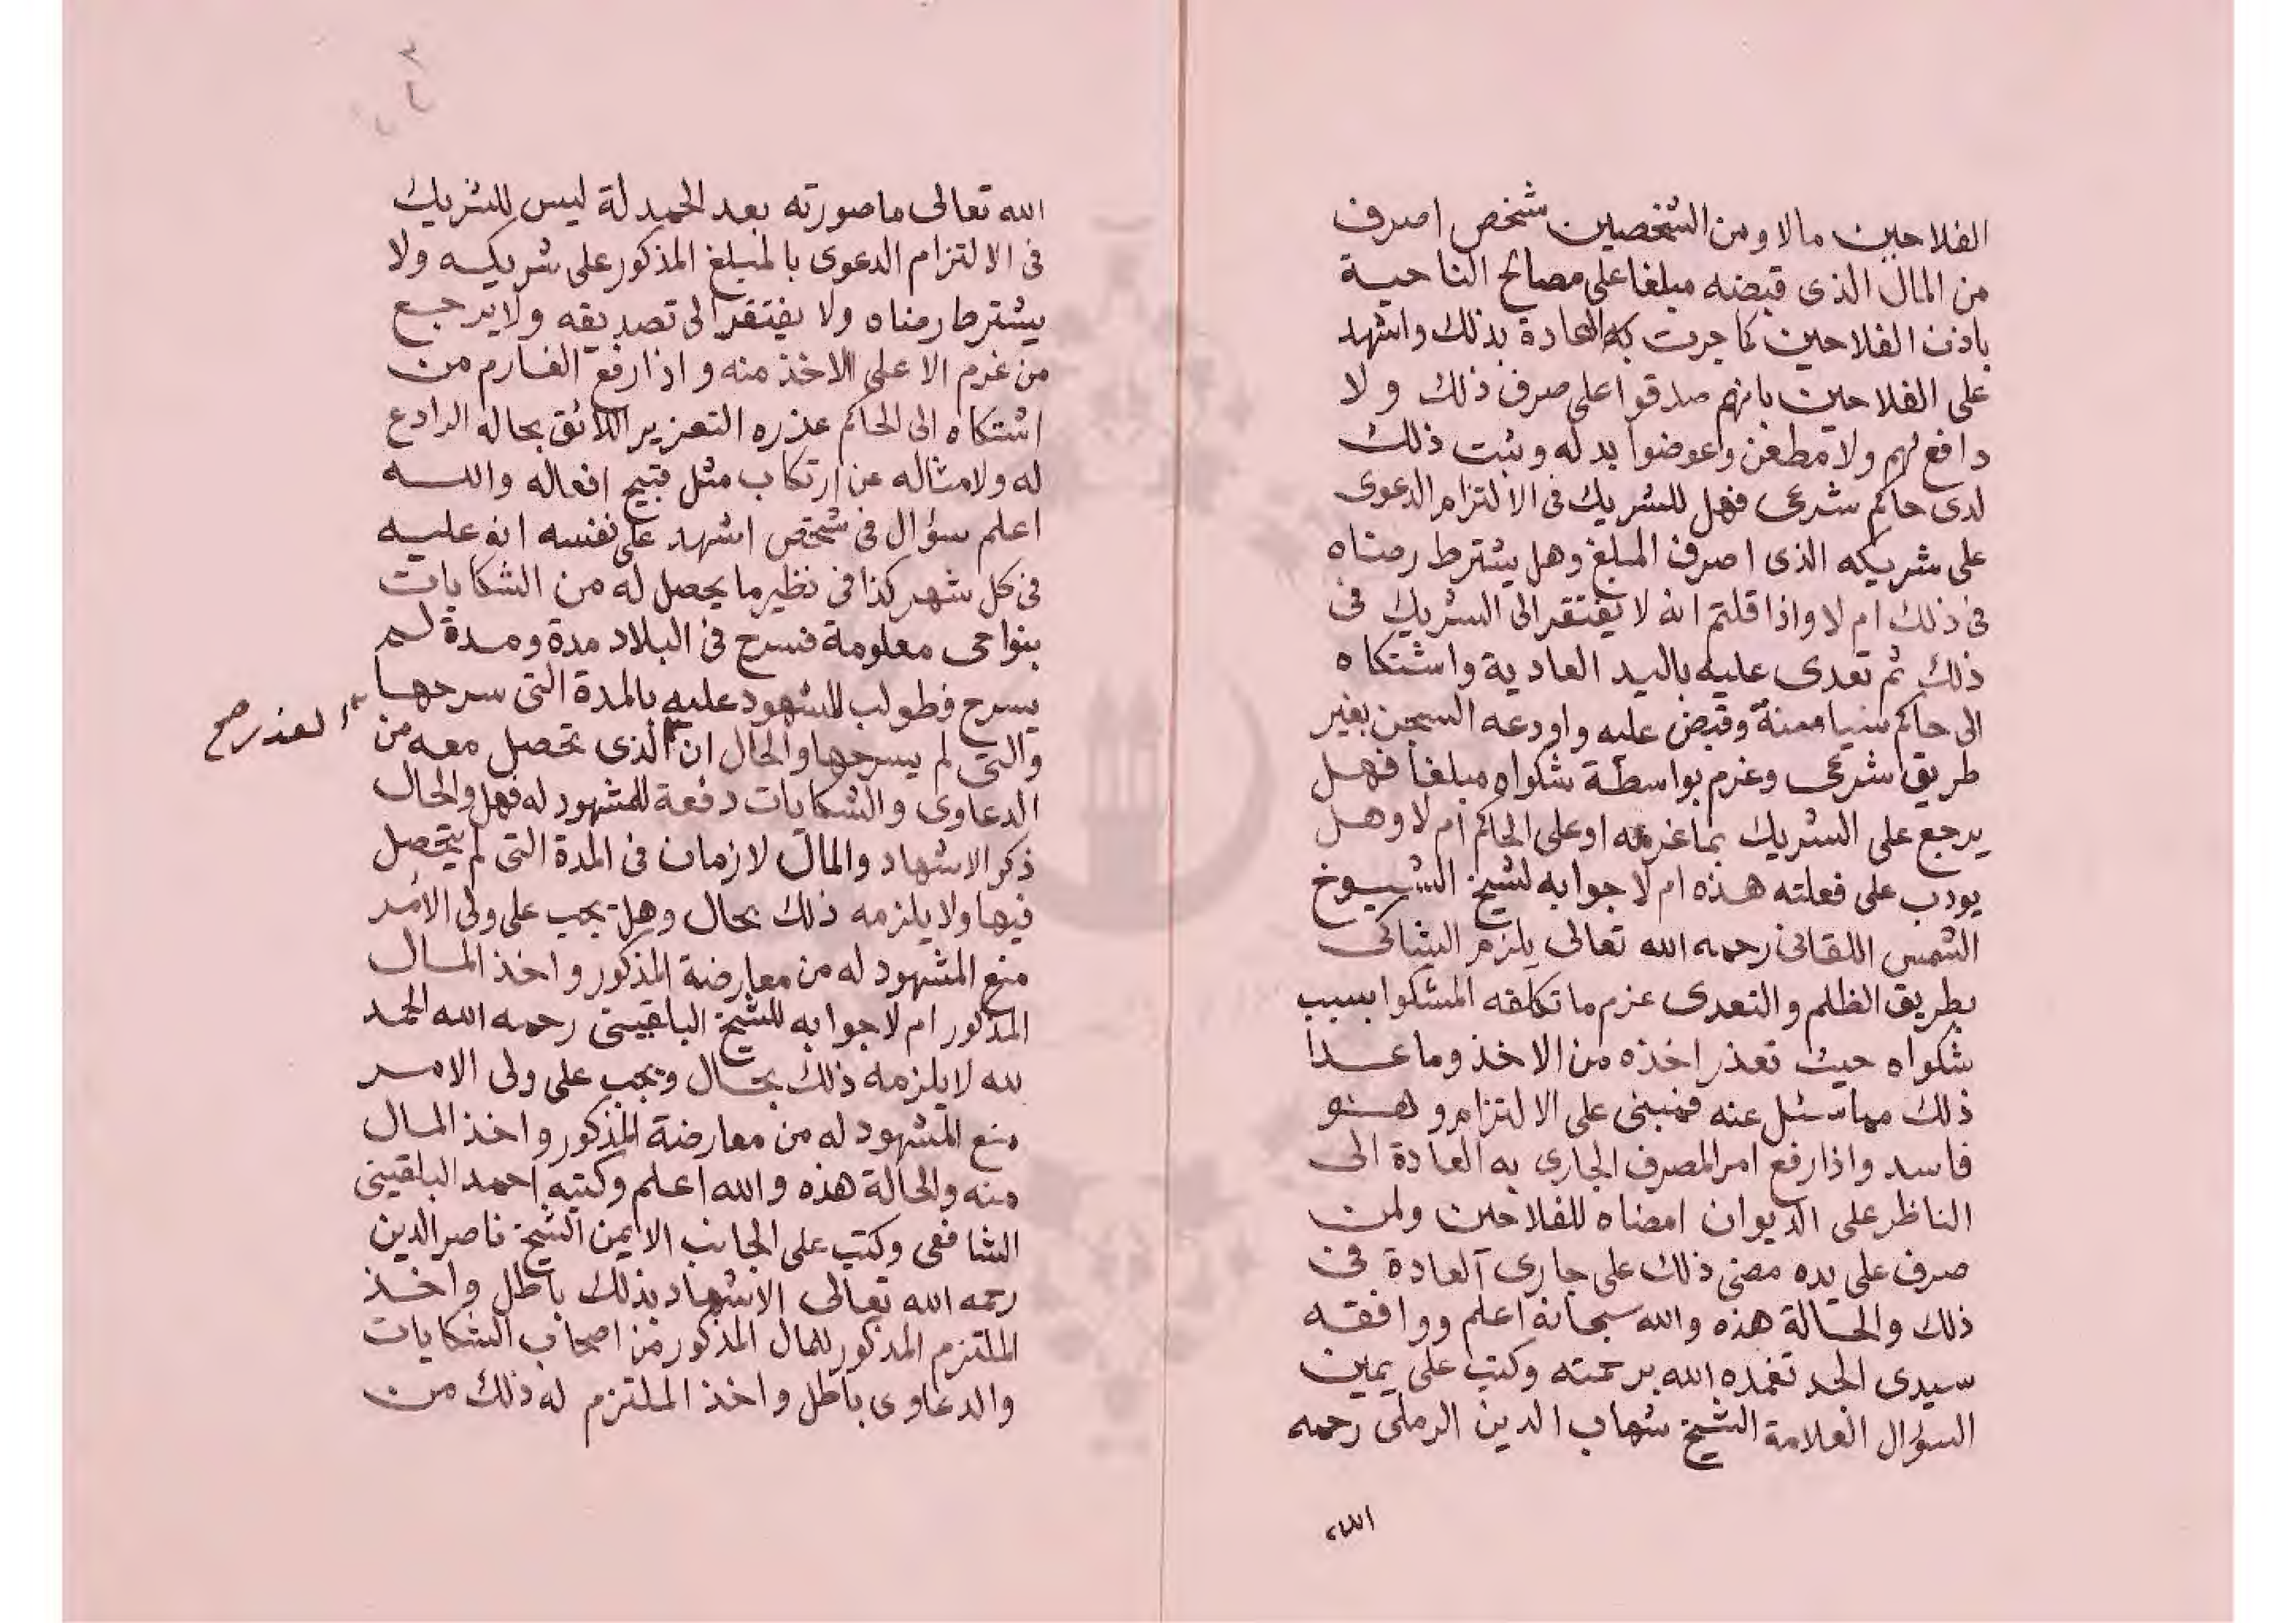 الفلاحين مالا ومن الشخصين شخص اصرف
من المال الذى قبضه مبلغا على مصالح الناحية
باذن الفلاحين كما جرت به العادة بذلك واشهد
على الفلاحين بانهم صدقوا على صرف ذلك ولا
دافع لهم ولا مطعن واعوضوا بدله وثبت ذلك
لدى حاكم شرعى فهل للشريك فى الالتزام الدعوى
على شريكه الذى اصرف المبلغ وهل يشترط رضاه
فى ذلك ام لا واذا قلتم انه لا يفتقر الى الشريك فى
ذلك ثم تعدى عليه باليد العادية واشتكاه
الى حاكم وقبض عليه واودعه السجن بغير
طريق شرعى وغرم بواسطة شكواه مبلغا فهل
يرجع على الشريك بما غرمه او على الحاكم ام لا وهل
يودب على فعلته هذه ام لا جوابه لشيخ الشيوخ
الشمس اللقانى رحمه الله تعالى يلزم الشاكى
بطريق الظلم والتعدى غرم ما تكلفه المشكوا بسبب
شكواه حيث تعذر اخذه من الاخذ وما عدا
ذلك مما سئل عنه فمبنى على الالتزام وهو
فاسد واذا رفع امر المصرف الجارى به العادة الى
الناظر على الديوان امضاه للفلاحين ولمن
صرف على يده مضى ذلك على جارى العادة فى
ذلك والحالة هذه والله سبحانه اعلم ووافقه
سيدى الجد تغمده الله برحمته وكتب على يمين
السؤال العلامة الشيخ شهاب الدين الرملى رحمه
الله
الله تعالى ما صورته بعد الحمدلة ليس للشريك
فى الالتزام الدعوى بالمبلغ المذكور على شريكه ولا
يشترط رضاه ولا يفتقر الى تصديقه ولا يرجع
من غرم الا على الاخذ منه واذا رفع الغارم من
اشتكاه الى الحاكم عذره التعزير اللائق بحاله الرادع
له ولامثاله عن ارتكاب مثل قبيح افعاله والله
اعلم سؤال فى شخص اشهد على نفسه انه عليه
فى كل شهر كذا فى نظير ما يحصل له من الشكايات
بنواحى معلومة فسرح فى البلاد مدة ومدة لم
يسرح فطولب المشهود عليه بالمدة التى سرحها
والتى لم يسرحها والحال ان الذى تحصل معه من
القدر صح
الدعاوى والشكايات دفعة للمشهود له فهل والحال
ذكر الاشهاد والمال لازمان فى المدة التى لم يتحصل
فيها ولا يلزمه ذلك بحال وهل يجب على ولى الامر
منع المشهود له من معارضة المذكور واخذ المال
المذكور ام لا جوابه للشيخ البلقينى رحمه الله الحمد
لله لا يلزمه ذلك بحال ويجب على ولى الامر
منع المشهود له من معارضة المذكور واخذ المال
منه والحالة هذه والله اعلم وكتبه احمد البلقينى
الشافعى وكتب على الجانب الايمن الشيخ ناصر الدين
رحمه الله تعالى الاشهاد بذلك باطل واخذ
الملتزم المذكور للمال المذكور من اصحاب الشكايات
والدعاوى باطل واخذ الملتزم له ذلك من